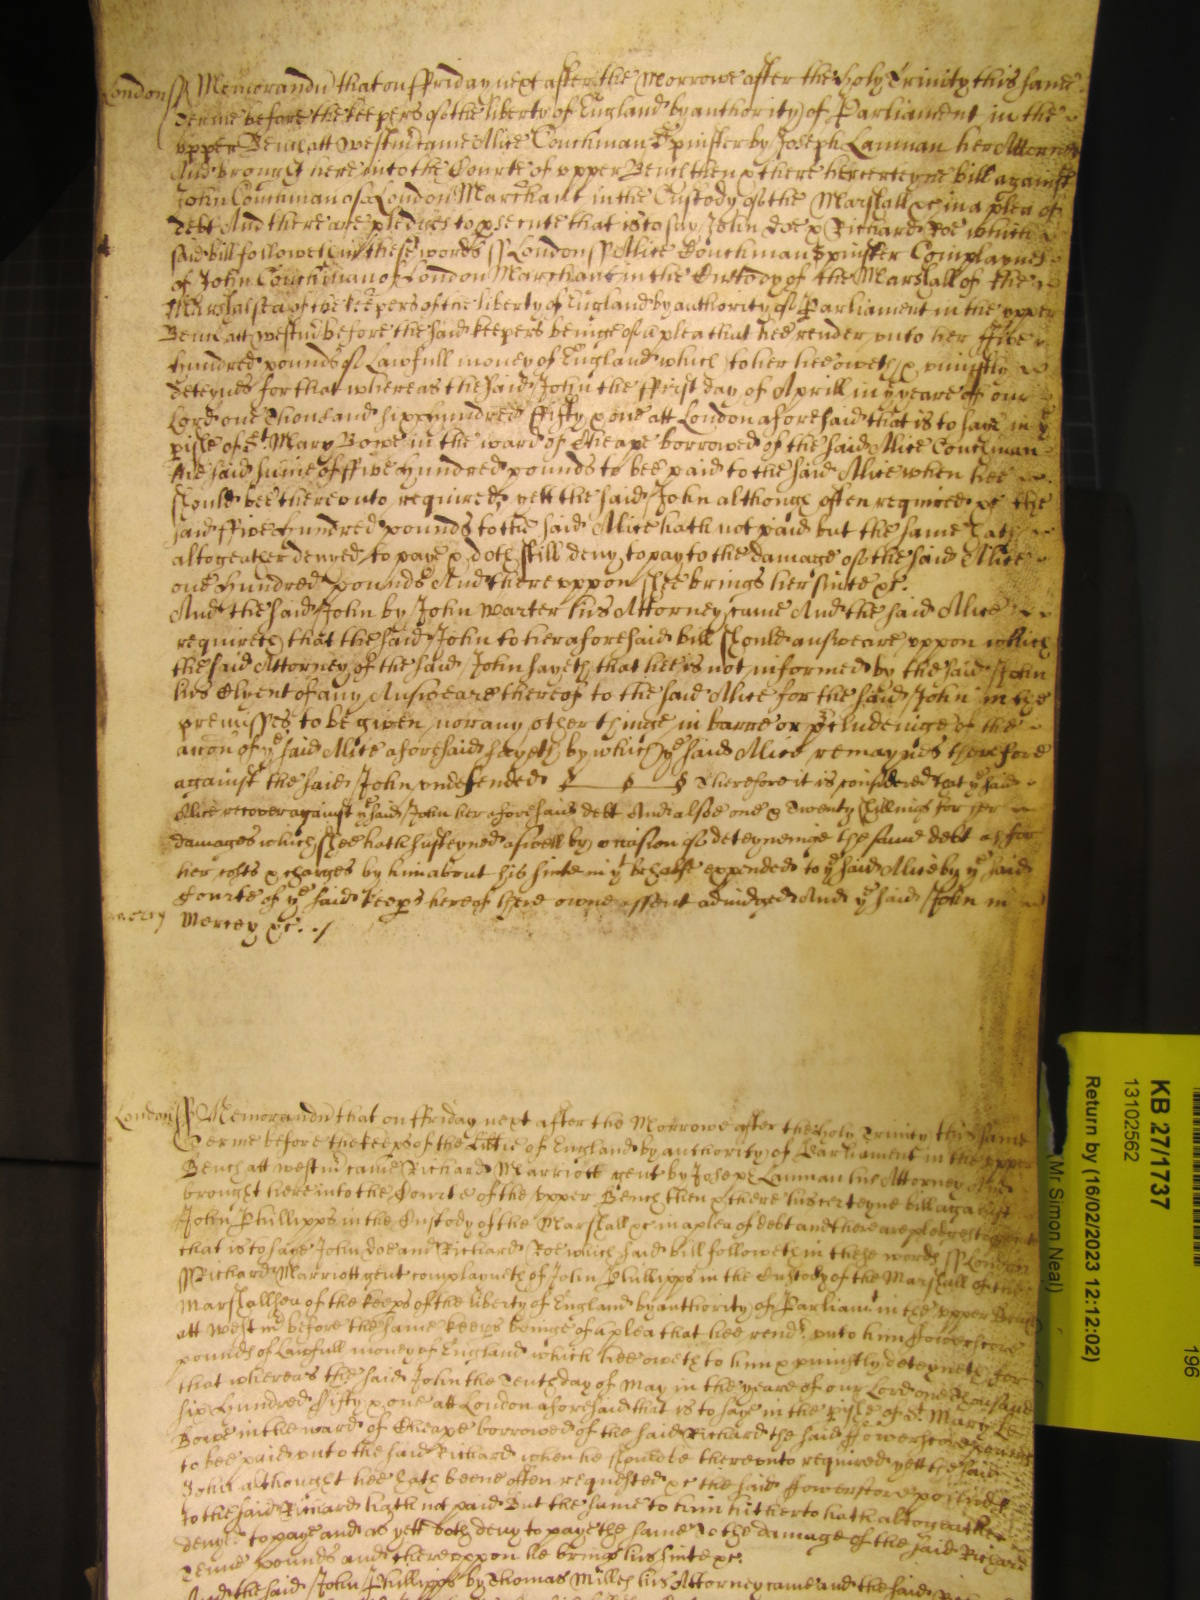 London ss Memorandu that on ffriday next after the Morrowe after the holy Trinity this same
Terme before the keepers of the liberty of England by authority of Parliament in the
vpper Bench att Westm came Alice Couchman Spinster by Joseph Lanman her Attorney
And brought here into the Courte of vpper Bench then & there her certeyne bill against
John Couchman of London Marchant in the Custody of the Marshall &c in a plea of
debt And there are pledges to psecute that is to say John Doe & Richard Roe which
said bill followeth in these words ss London ss Alice Couchman Spinster Complaynes
of John Couchman of London Marchant in the Custody of the Marshall of the
Marshalsea of the keepers of the liberty of England by authority of Parliament in the vpper
Bench att Westm before the said keepers beinge of a plea that hee render vnto her ffive
hundred pounds of Lawfull money of England which to her hee oweth & vniustly
deteynes for that whereas the said John the ffirst day of Aprill in y yeare of our
Lord one Thousand six hundred ffifty & one att London aforesaid that is to saye in ye
pishe of St Mary Bowe in the ward of Cheape borrowed of the said Alice Couchman
the said sume of ffive hundred pounds to bee paid to the said Alice when hee
should bee therevnto required yett the said John although often required &c the
said ffive hundred pounds to the said Alice hath not paid but the same hath
altogeather denyed to paye & doth still deny to pay to the damage of the said Alice
one hundred pounds And therevppon shee brings her suite &c.
And the said John by John Warter his Attorney came And the said Alice
requireth that the said John to her aforesaid bill should answeare vppon which
the said Attorney of the said John sayeth that hee is not informed by the said John
his Clyent of any Answeare thereof to the said Alice for the said John in the
premisses to be given nor any other thinge in barre or pcludeinge of the
accon of ye said Alice aforesaid sayeth by which ye said Alice remaynes therefore
against the said John vndefended Therefore it is considered that ye said
Alice recover against ye said John her aforesaid debt And alsoe one & Twenty shillings for her
damages which shee hath susteyned aswell by occasion of deteyneinge the same debt as for
her costs & charges by him about his suite in yt behalfe expended to ye said Alice by ye said
Courte of ye said keeps hereof there owne assent adiudged And ye said John in
mercy Mercey &c. ./
London ss Memorandu that on ffriday next after the Morrowe after the holy Trinity this same
Terme before the keeps of the Littie of England by authority of Parliament in the vpper
Bench att Westm came Richard Marriott gent by Joseph Lanman his Attorney And
brought here into the Courte of the vpper Bench then & there his certeyne bill against
John Phillipps in the Custody of the Marshall &c in a plea of debt and there are pledges to
that is to saye John Doe and Richard Roe which said bill followeth in these words ss London
ss Richard Marriott gent complayneth of John Phillipps in the Custody of the Marshall of the
Marshallsea of the keeps of the liberty of England by authority of Parliamt in the vpper Bench
att Westm before the same keeps beinge of a plea that hee rendr vnto him ffowerscore
pounds of Lawfull money of England which hee oweth to him & vniustly deteyneth for
that whereas the said John the Tenth day of May in the yeare of our Lord one Thousand
six hundred ffifty & one att London aforesaid that is to saye in the pishe of St Mary Le
Bowe in the ward of Cheape borrowed of the said Richard the said ffowerscore pounds
to bee paid vnto the said Richard when he should be therevnto required yett the said
John althought hee hath beene often requested &c the said ffowerscore pounds
to the said Richard hath not paid But the same to him hitherto hath altogeather
denyed to paye and as yett doth deny to paye the same To the damage of the said Richard
Tenne pounds and therevppon he brings his suite &c.
And the said John Phillipps by Thomas Milles his Attorney came and the said
KB 27/1737
13102562
Return by (16/02/2023 12:12:02)
(Mr Simon Neal)
196